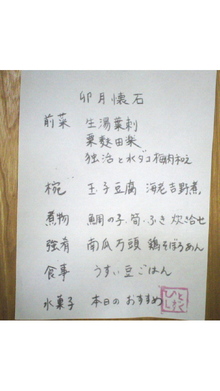 卯月懐石
前菜 生湯葉刺
粟麩田楽
独活と水ダコ梅肉和え
椀 玉子豆腐 海老吉野煮
煮物 鯛の子、筍、ふき 炊合せ
強肴 南瓜万頭 鶏そぼろあん
食事 うすい豆ごはん
水菓子 本日のおすすめ